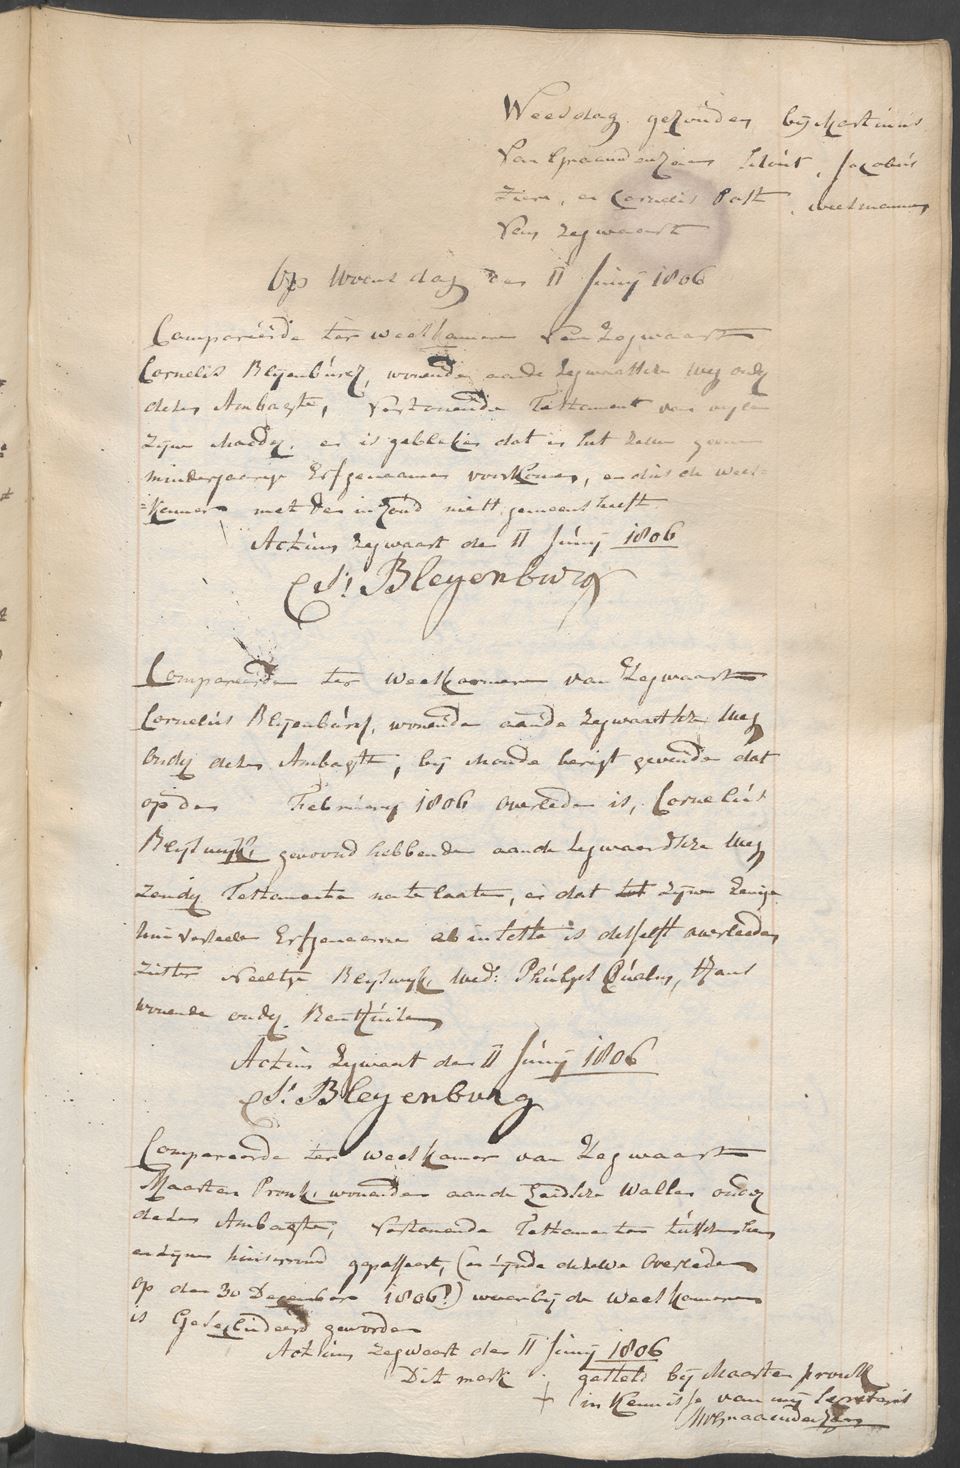 Weesdag gehouden bij Martinus
van Graauwenhaan Schout, Jacobus
en Cornelis Post, weesmannen
van Zegwaart
Op Woensdag den 11 Junij 1806
Compareerde ter weeskamer van Zegwaart
Cornelis Bleijenburg, wonende aande Zegwaartsche weg onder
deeser Ambagte, vertonende Testament van wijlen
zijne moeder, en is gebleken dat in het zelve geene
minderjaarige Erfgenaamen voorkomen, en dus de wees=
=kamer met den inhoud niett gemeens heeft
Actum Zegwaart den 11 Junij 1806
Cs: Bleyenburg
Compareerde ter Weeskamer van Zegwaart
Cornelis Bleijenburg, wonende aande Zegwaartsche Weg
onder deeser Ambagte, bij monde berigt gevende dat
op den Februarij 1806 overleden is, Cornelus
Bleiswijk, gewoond hebbende aande Zegwaardsche Weg
zonder Testamente nate laaten, en dat tot zijne eenige
universeele Erfgenaame ab intestato is desselfs overleedens
zuster Neeltje Bleiswijk, wed: Philip , thans
wonende onder Benthuisen
Actum Zegwaart den 11 Junij 1806
Cs: Bleyenburg
Compareerde ter weeskamer van Zegwaart
Maarten Pronk, wonende aande Leidsche Wallen onder
deeser Ambagte, vertonende Testamenten tusschen hem
en zijne huisvrouw gepasseert, (en zijnde dezelve overleden
op den 30 December 1806?) waarbij de Weeskamer
is Geseclideerd geworden
Actum Zegwaart den 11 Junij 1806
Dit merk + gesteld bij Maarten pronk
in Kennisse van mij Secretaris